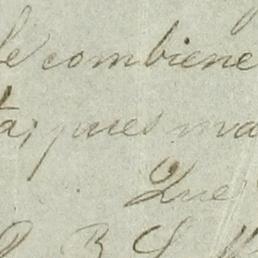 le combiene
ta; pues ma
Que
B S